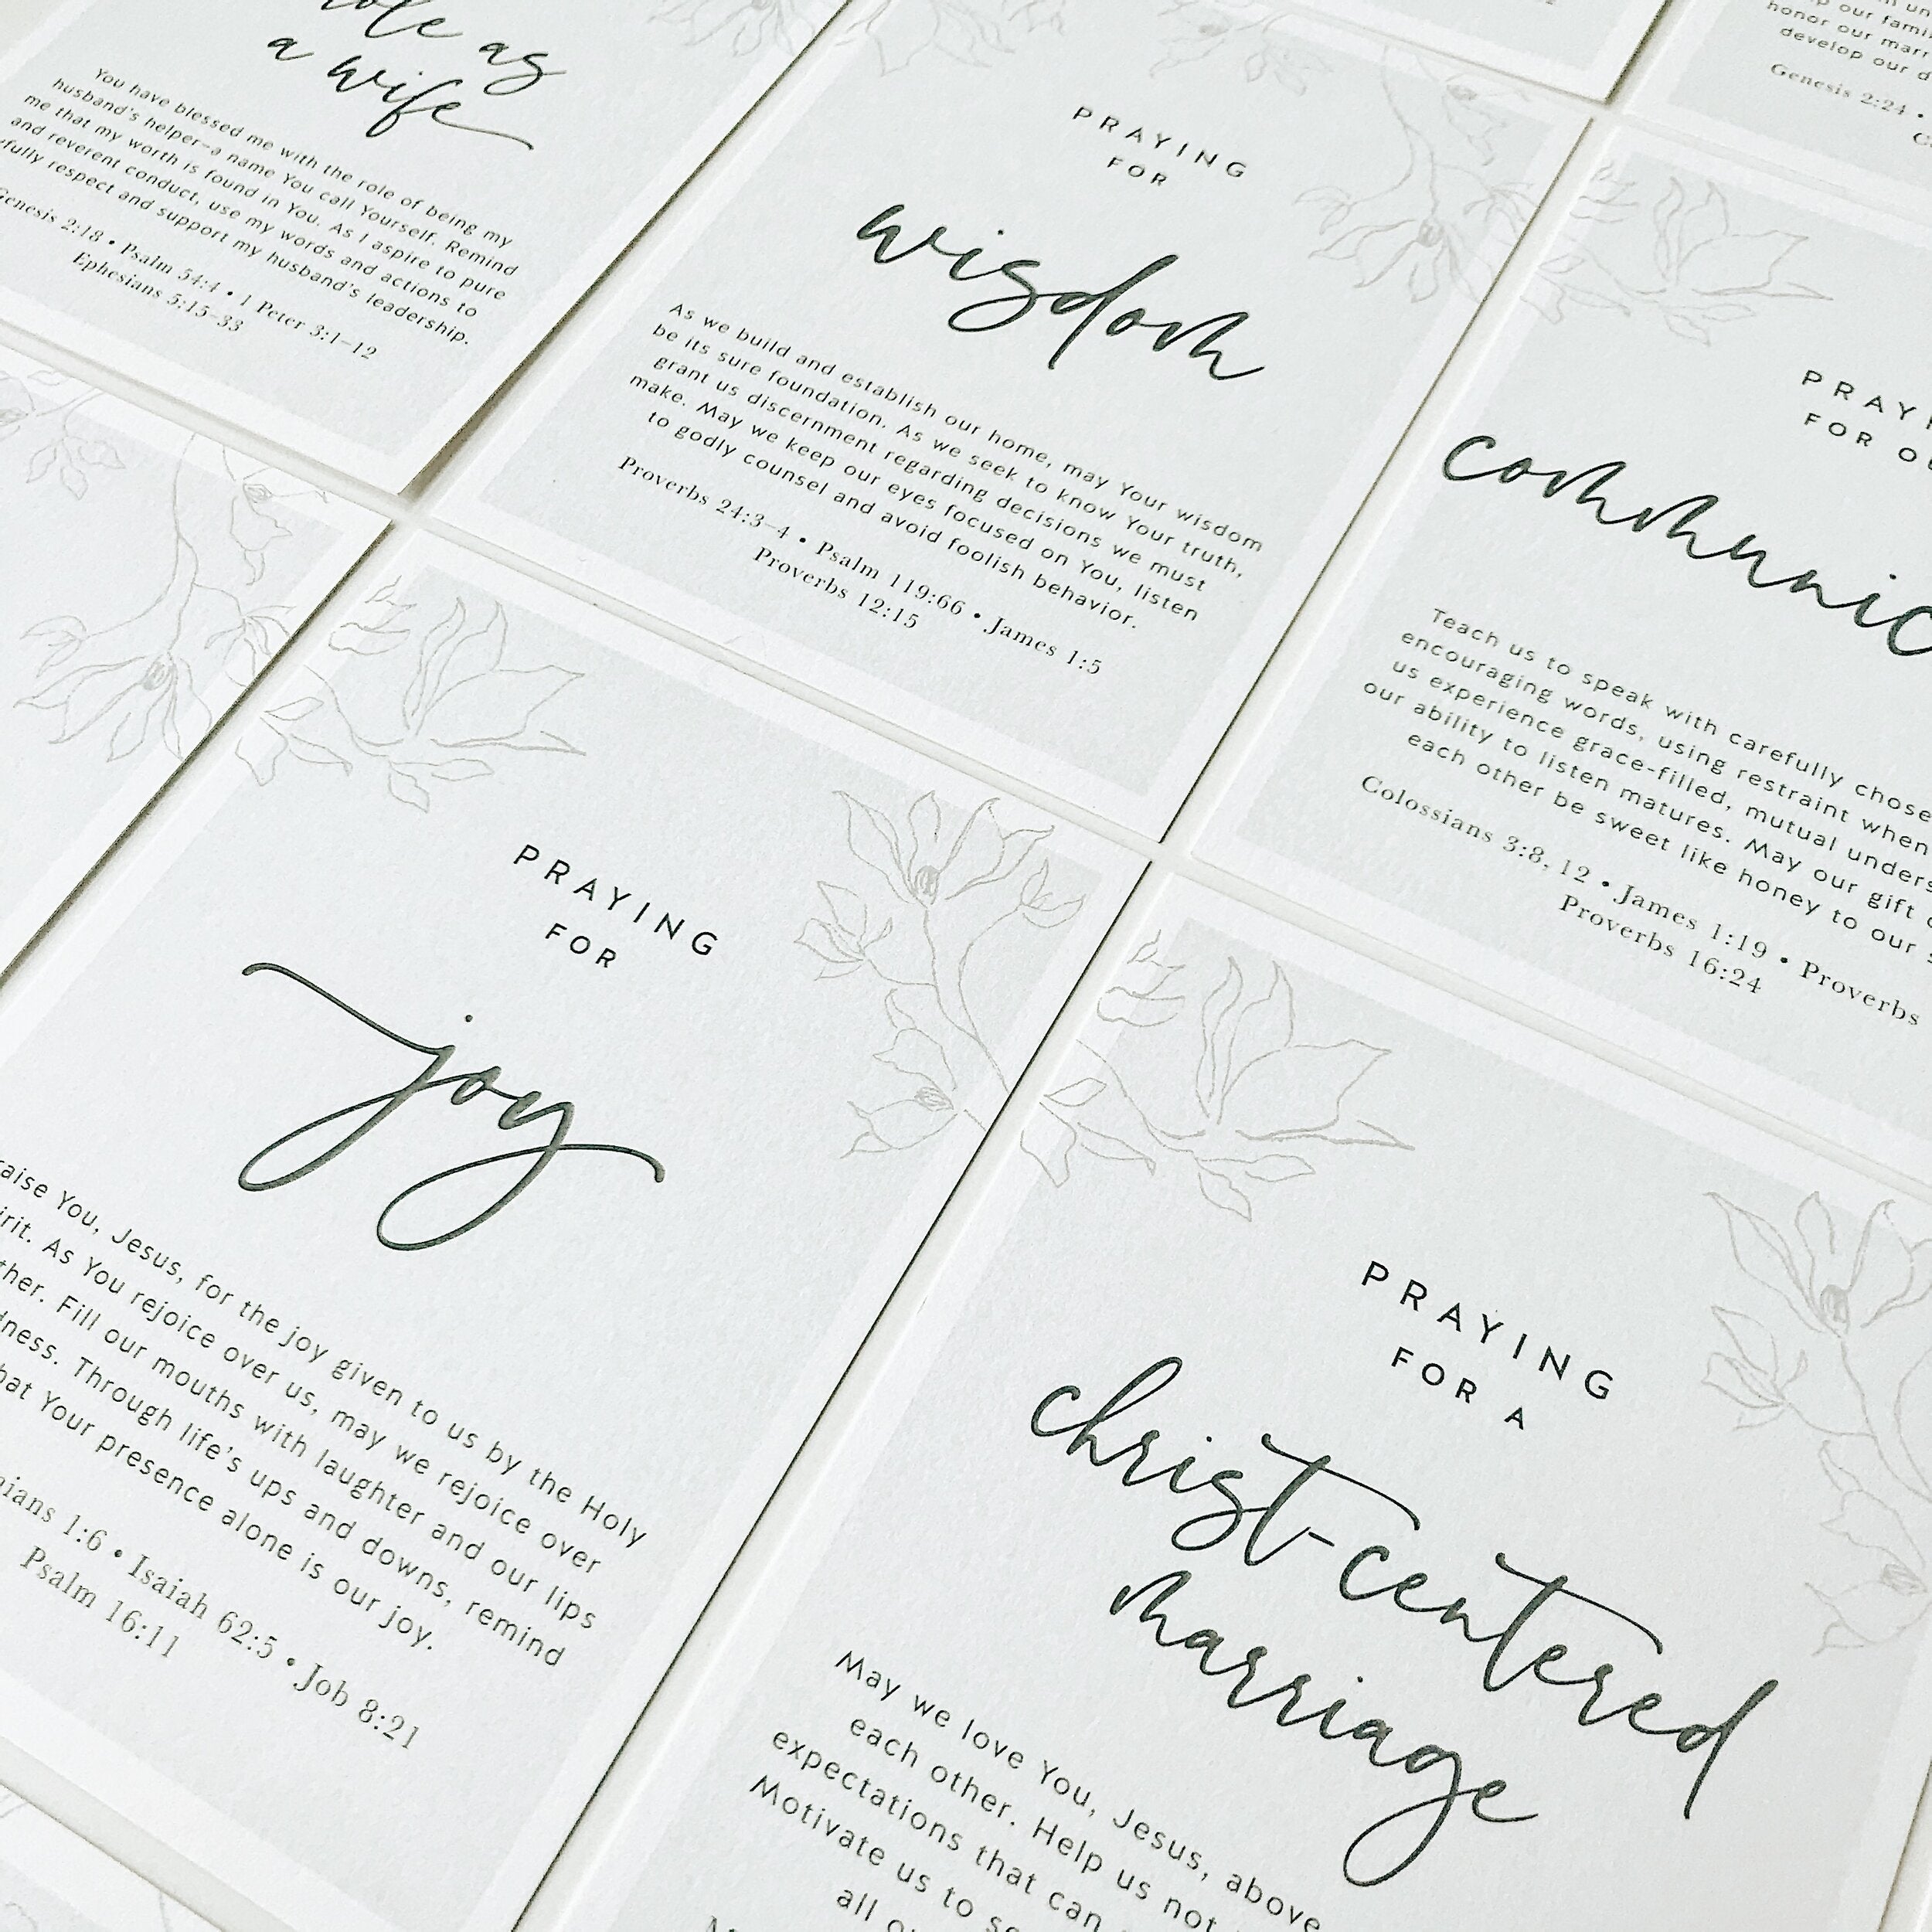 role as
a wife
You have blessed me with the role of being my
husband's helper—a name You call Yourself. Remind
me that my worth is found in You. As I aspire to pure
and reverent conduct, use my words and actions to
respect and support my husband's leadership.
Genesis 2:18 • Psalm 54:4 • 1 Peter 3:1–12
Ephesians 5:15–33
PRAYING
FOR
wisdom
As we build and establish our home, may Your wisdom
be its sure foundation. As we seek to know Your truth,
grant us discernment regarding decisions we must
make. May we keep our eyes focused on You, listen
to godly counsel and avoid foolish behavior.
Proverbs 24:3–4 • Psalm 119:66 • James 1:5
Proverbs 12:15
our
honor our
develop our
Genesis 2:24 •
FOR
Teach us to speak with carefully
encouraging words, using restraint when
us experience grace-filled, mutual
our ability to listen matures. May our gift
each other be sweet like honey to our
Colossians 3:8, 12 • James 1:19 • Proverbs
Proverbs 16:24
PRAYING
FOR
joy
You, Jesus, for the joy given to us by the Holy
As You rejoice over us, may we rejoice over
Fill our mouths with laughter and our lips
Through life's ups and downs, remind
Your presence alone is our joy.
1:6 • Isaiah 62:5 • Job 8:21
Psalm 16:11
PRAYING
FOR A
christ-centered
marriage
May we love You, Jesus, above
each other. Help us not
expectations that can
Motivate us to
all